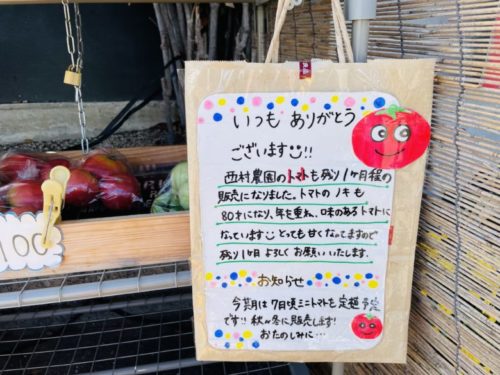 いつも ありがとう
ございます!!
西村農園のトマトも残り1ヶ月程の
販売になりました。トマトのノキも
80才になり、年を重ね、味のあるトマトに
なっています とっても甘くなってますので
残り1ヶ月 よろしく お願いいたします。
お知らせ
今期は7月頃ミニトマトも定植予定
です!! 秋~冬に販売します!
おたのしみに…
100